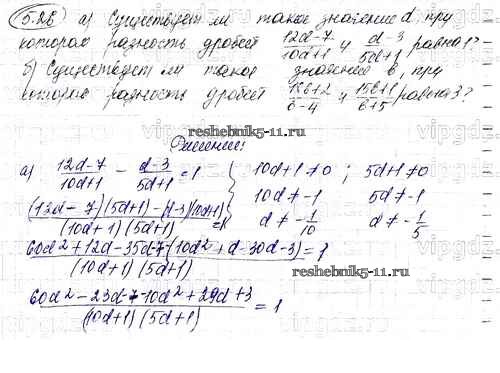 5.26 а) Существует ли такое значение d, при
котором разность дробей \frac{12d-7}{10d+1} и \frac{d-3}{5d+1} равна 1?
б) Существует ли такое значение b, при
котором разность дробей \frac{18b+2}{b-4} и \frac{15b+1}{b+5} равна 3?
reshebnik5-11.ru
Решение:
а) \frac{12d-7}{10d+1} - \frac{d-3}{5d+1} = 1 { 10d+1≠0 ; 5d+1≠0
10d≠-1 5d≠-1
\frac{(12d-7)(5d+1)-(d-3)(10d+1)}{(10d+1)(5d+1)} = 1 d≠-\frac{1}{10} d≠-\frac{1}{5}
\frac{60d²+12d-35d-7-(10d²+d-30d-3)}{(10d+1)(5d+1)} = 1
reshebnik5-11.ru
\frac{60d²-23d-7-10d²+29d+3}{(10d+1)(5d+1)} = 1